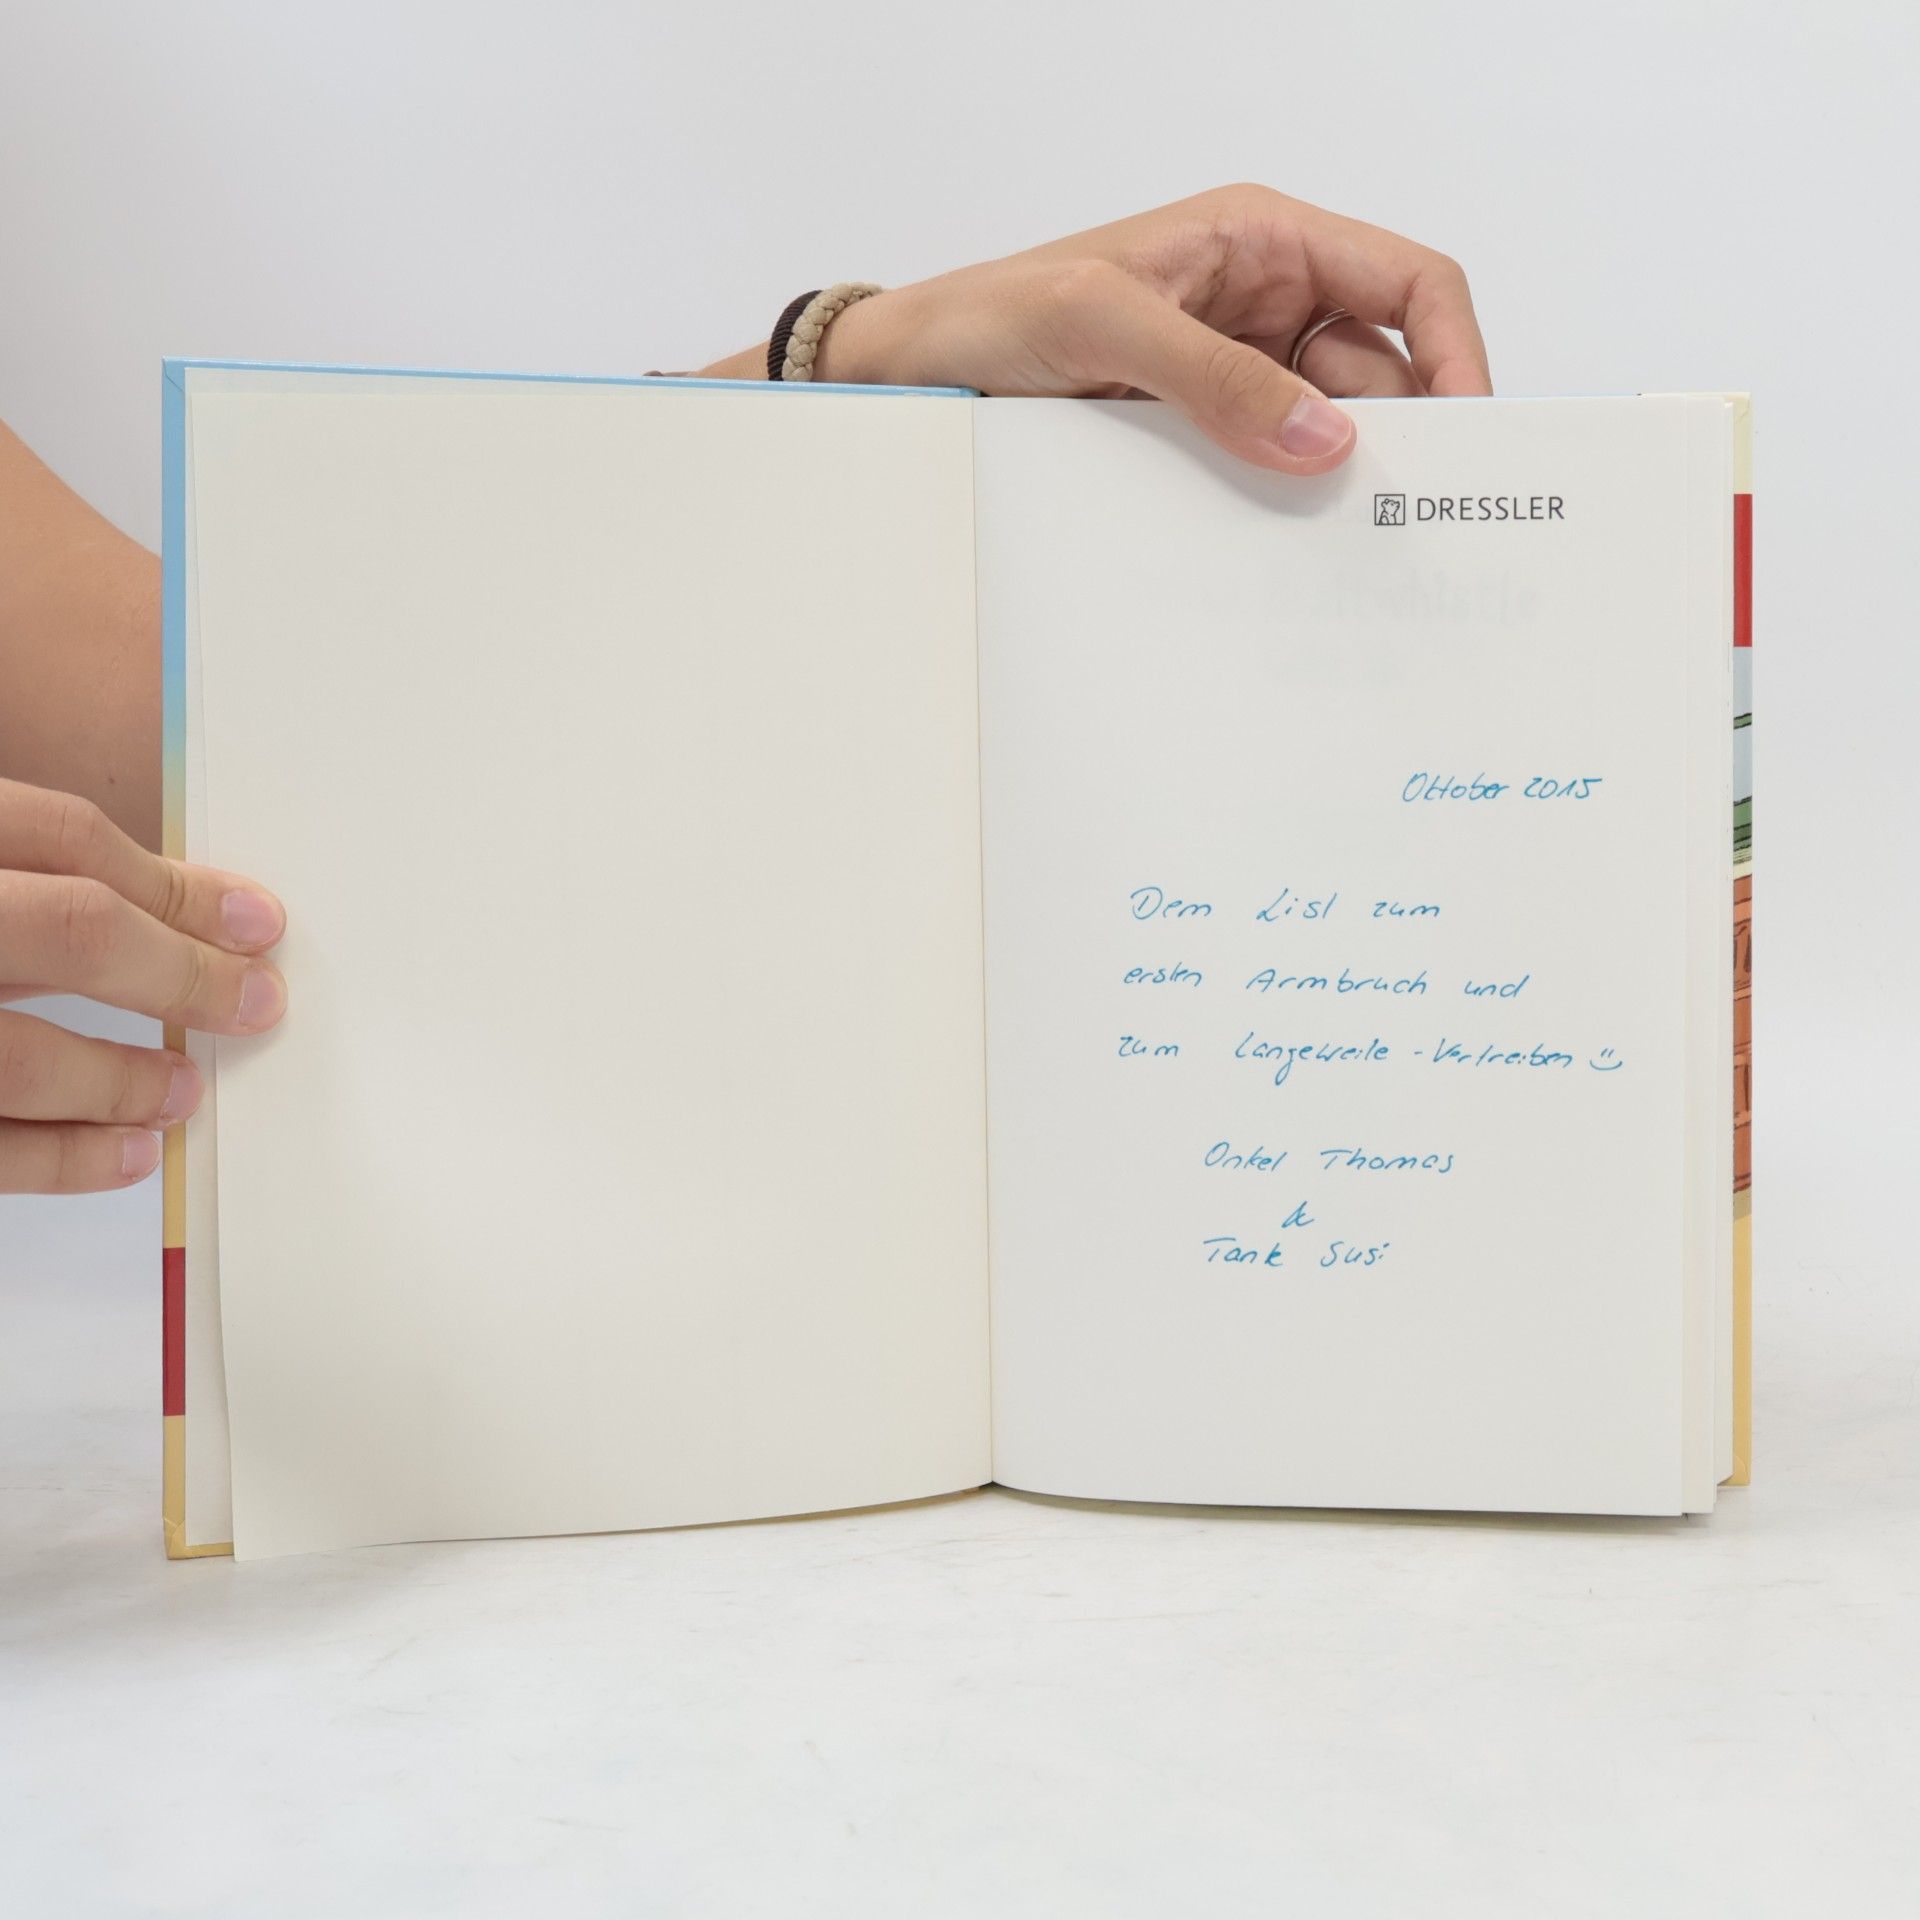 DRESSLER
Oktober 2015
Dem Lisl zum
ersten Armbruch und
zum Langeweile-Vertreiben
Onkel Thomas
&
Tante Susi